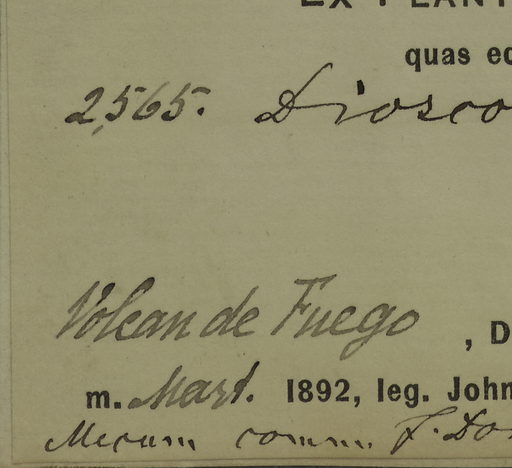 EX PLANT
quas ed
2,565. Diosco
Volcan de Fuego , D
m. Mart. 1892, leg. John
Mecum comm. J. Don